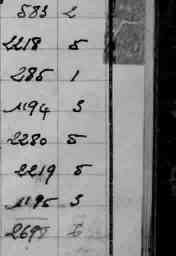 583 2
2218 5
285 1
1194 3
2280 5
2219 5
1195 3